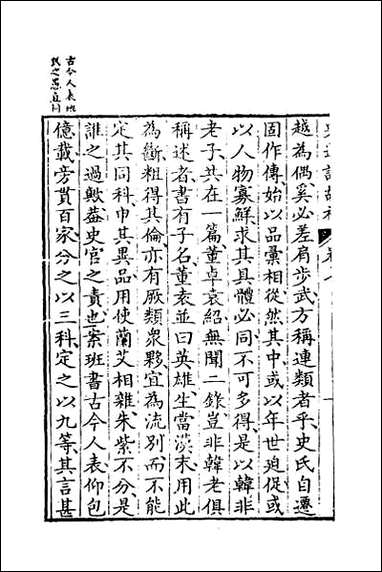 越為偶奚必差肩步武方稱連類者乎史氏自遷
固作傳始以品彙相從然其中或以年世迫促或
以人物寡鮮求其具體必同不可多得是以韓非
老子共在一篇董卓袁紹無聞二錄豈非韓老俱
稱述者書有子名董袁並曰英雄生當漢末用此
為斷粗得其倫亦有厥類衆夥宜為流別而不能
定其同科巾其異品用使蘭艾相雜朱紫不分是
誰之過歟葢史官之責也案班書古今人表仰包
億載旁貫百家分之以三科定之以九等其言甚
古今人表